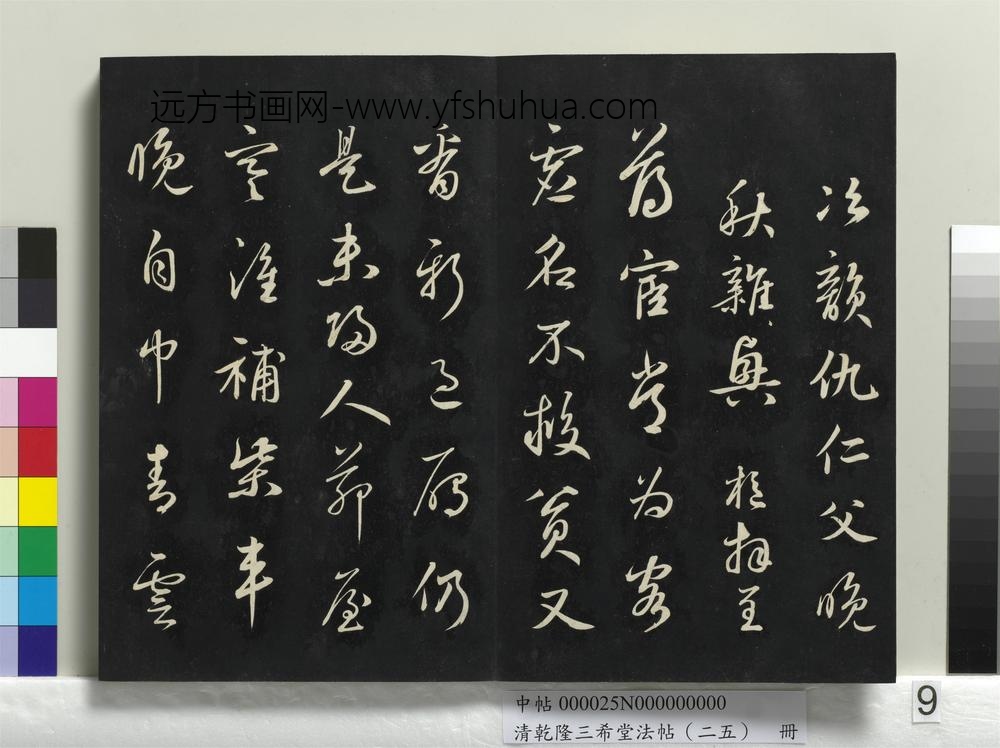 远方书画网-www.yfshuhua.com
次韻仇仁父晚
秋雜興 桓拜呈
薄宦常为客
虚名不救貧又
看新過雁仍
是未歸人茆屋
寒誰補柴車
晚自巾青雲
中帖 000025N000000000
清乾隆三希堂法帖（二五） 冊
9